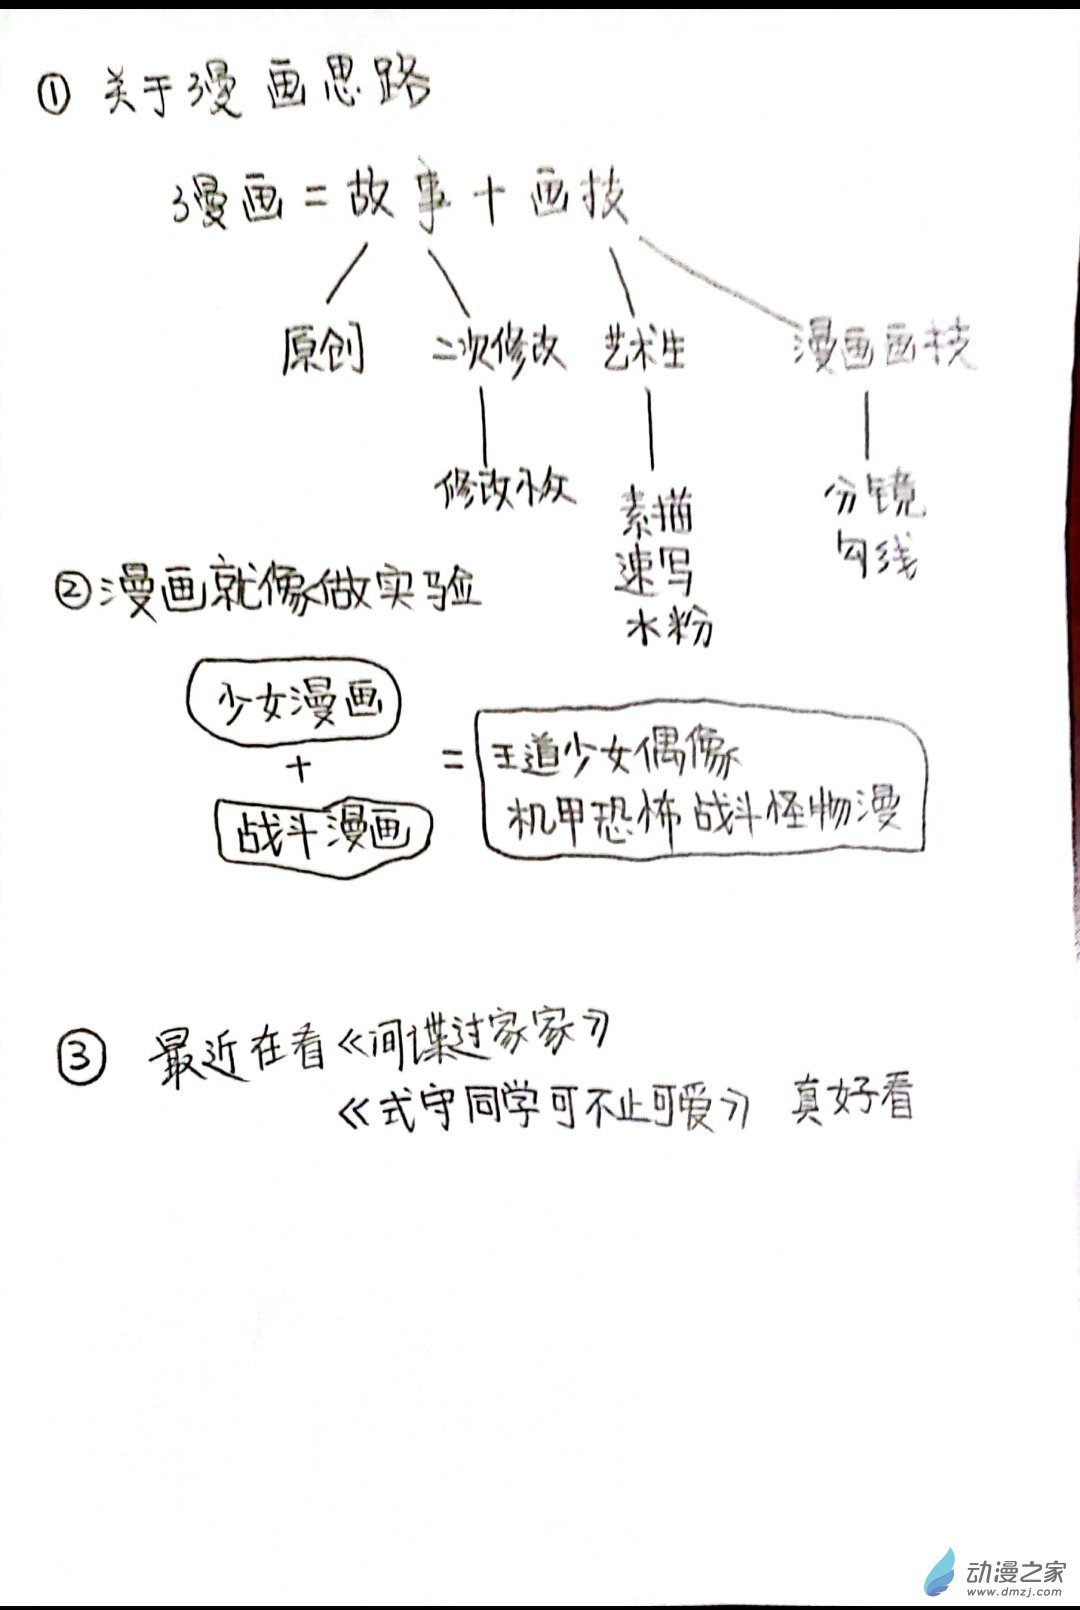 ① 关于漫画思路
漫画=故事+画技
原创 二次修改 艺术生 漫画画技
修改小众
素描
速写
水粉
分镜
勾线
②漫画就像做实验
少女漫画
+
战斗漫画
=
王道少女偶像
机甲恐怖战斗怪物漫
③ 最近在看《间谍过家家》
《式守同学可不止可爱》 真好看
动漫之家
www.dmzj.com